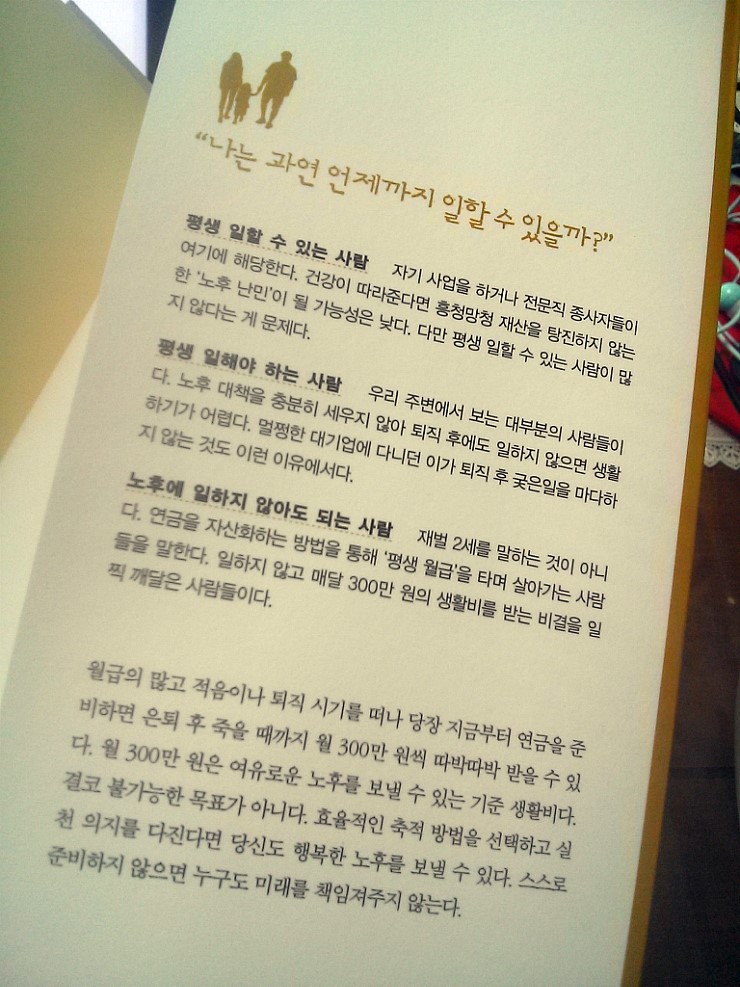 “나는 과연 언제까지 일할 수 있을까?”
평생 일할 수 있는 사람 자기 사업을 하거나 전문직 종사자들이
여기에 해당한다. 건강이 따라준다면 흥청망청 재산을 탕진하지 않는
한 ‘노후 난민’이 될 가능성은 낮다. 다만 평생 일할 수 있는 사람이 많
지 않다는 게 문제다.
평생 일해야 하는 사람 우리 주변에서 보는 대부분의 사람들이
다. 노후 대책을 충분히 세우지 않아 퇴직 후에도 일하지 않으면 생활
하기가 어렵다. 멀쩡한 대기업에 다니던 이가 퇴직 후 궂은일을 마다하
지 않는 것도 이런 이유에서다.
노후에 일하지 않아도 되는 사람 재벌 2세를 말하는 것이 아니
다. 연금을 자산화하는 방법을 통해 ‘평생 월급’을 타며 살아가는 사람
들을 말한다. 일하지 않고 매달 300만 원의 생활비를 받는 비결을 일
찍 깨달은 사람들이다.
월급의 많고 적음이나 퇴직 시기를 떠나 당장 지금부터 연금을 준
비하면 은퇴 후 죽을 때까지 월 300만 원씩 따박따박 받을 수 있
다. 월 300만 원은 여유로운 노후를 보낼 수 있는 기준 생활비다.
결코 불가능한 목표가 아니다. 효율적인 축적 방법을 선택하고 실
천 의지를 다진다면 당신도 행복한 노후를 보낼 수 있다. 스스로
준비하지 않으면 누구도 미래를 책임져주지 않는다.